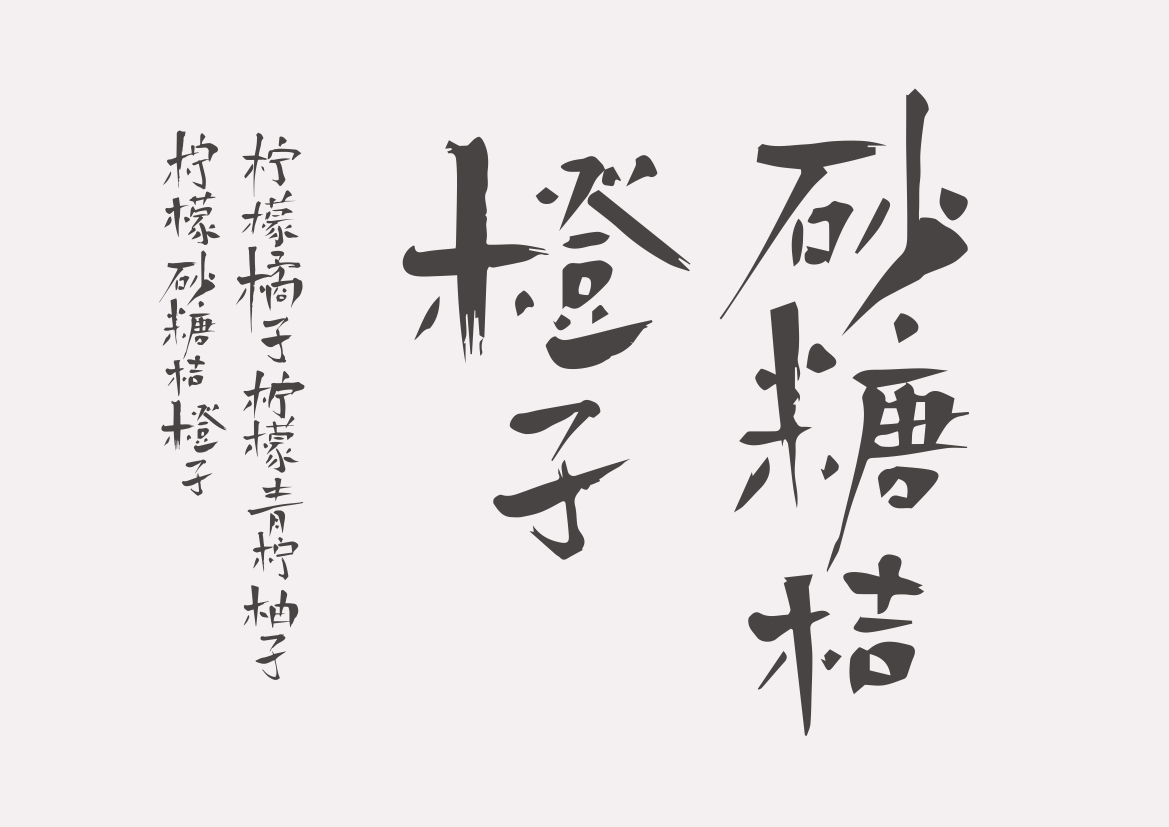 砂糖桔
橙子
柠檬橘子柠檬青柠柚子
柠檬砂糖桔橙子